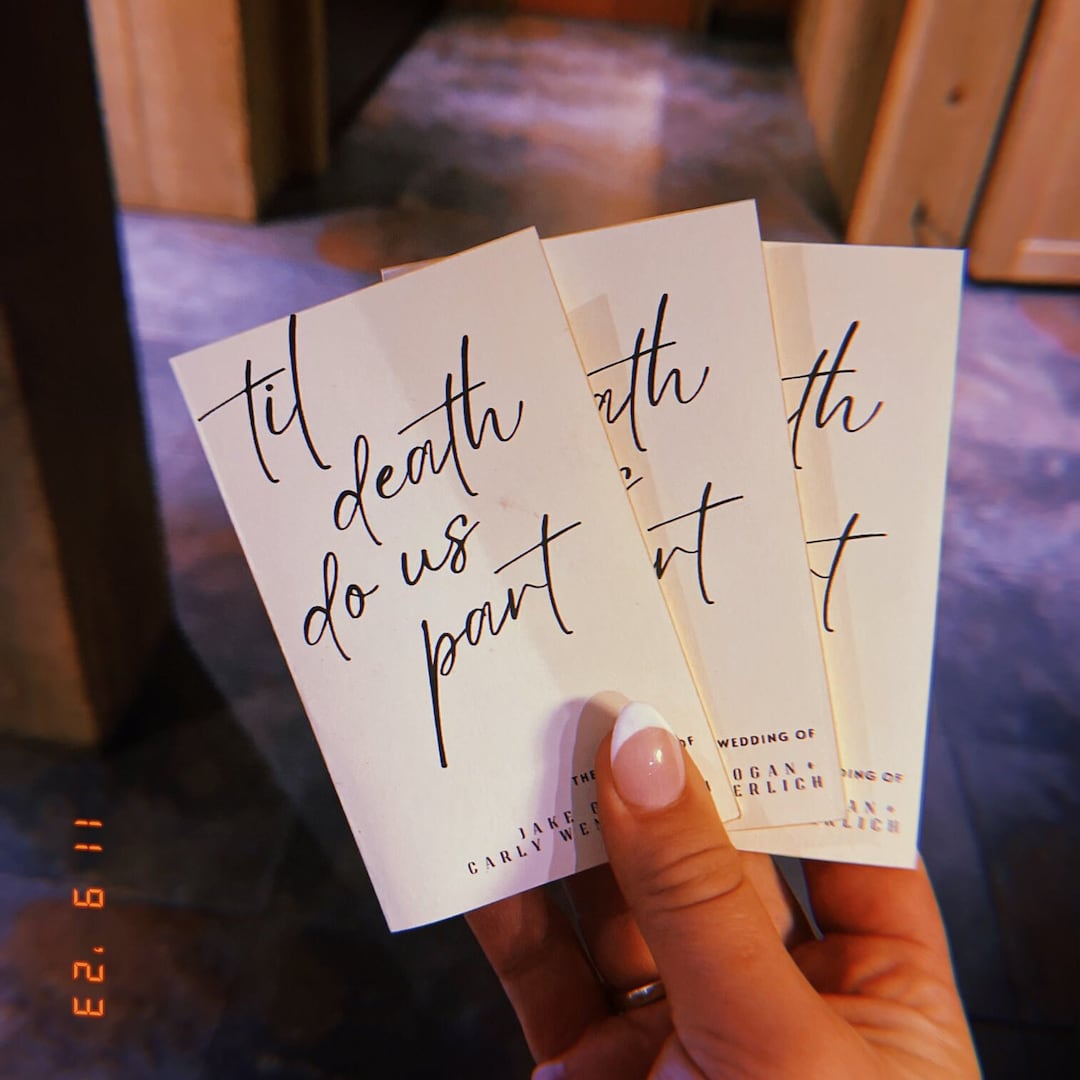 til
death
do us
part
THE
OF
JAKE
CARLY
th
part
WEDDING OF
OGAN +
ERLICH
th
t
DING OF
AN +
RLICH
11 9 '23